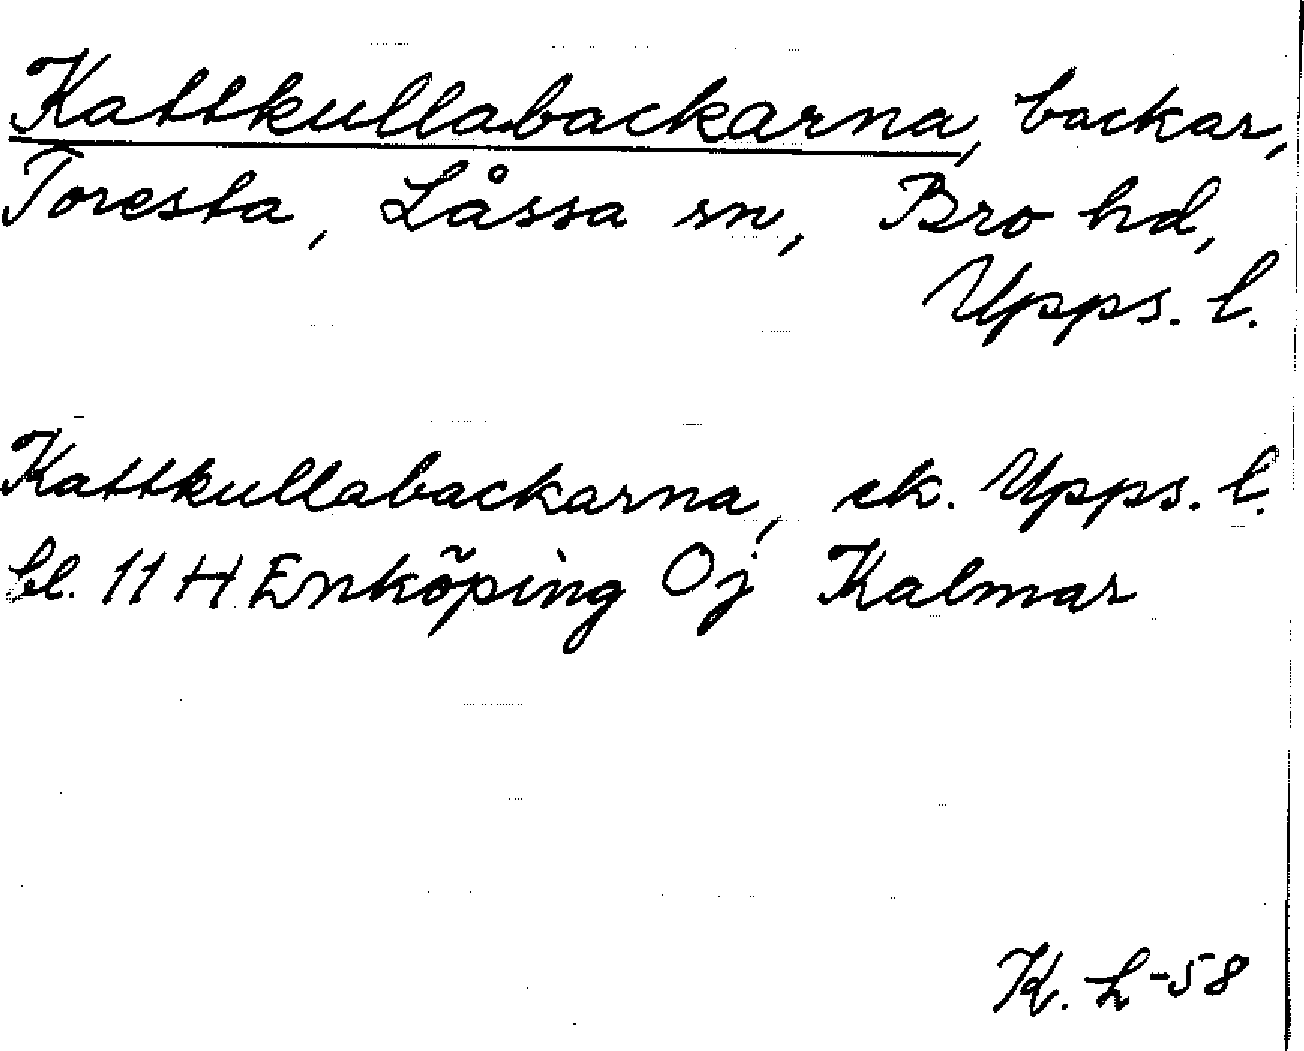 Kattkullabackarna, backar,
Toresta, Låssa sn, Bro hd,
Upps. l.
Kattkullabackarna, ek. Upps. l.
bl. 11 H Enköping Oj Kalmar
K. L-58